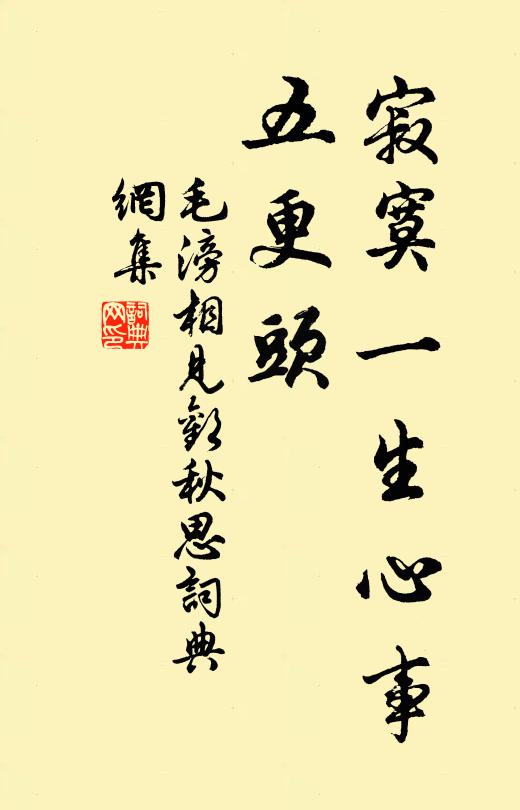 寂寞一生心事
五更頭
毛滂相見歡秋思詞典
網集
詞典
网印